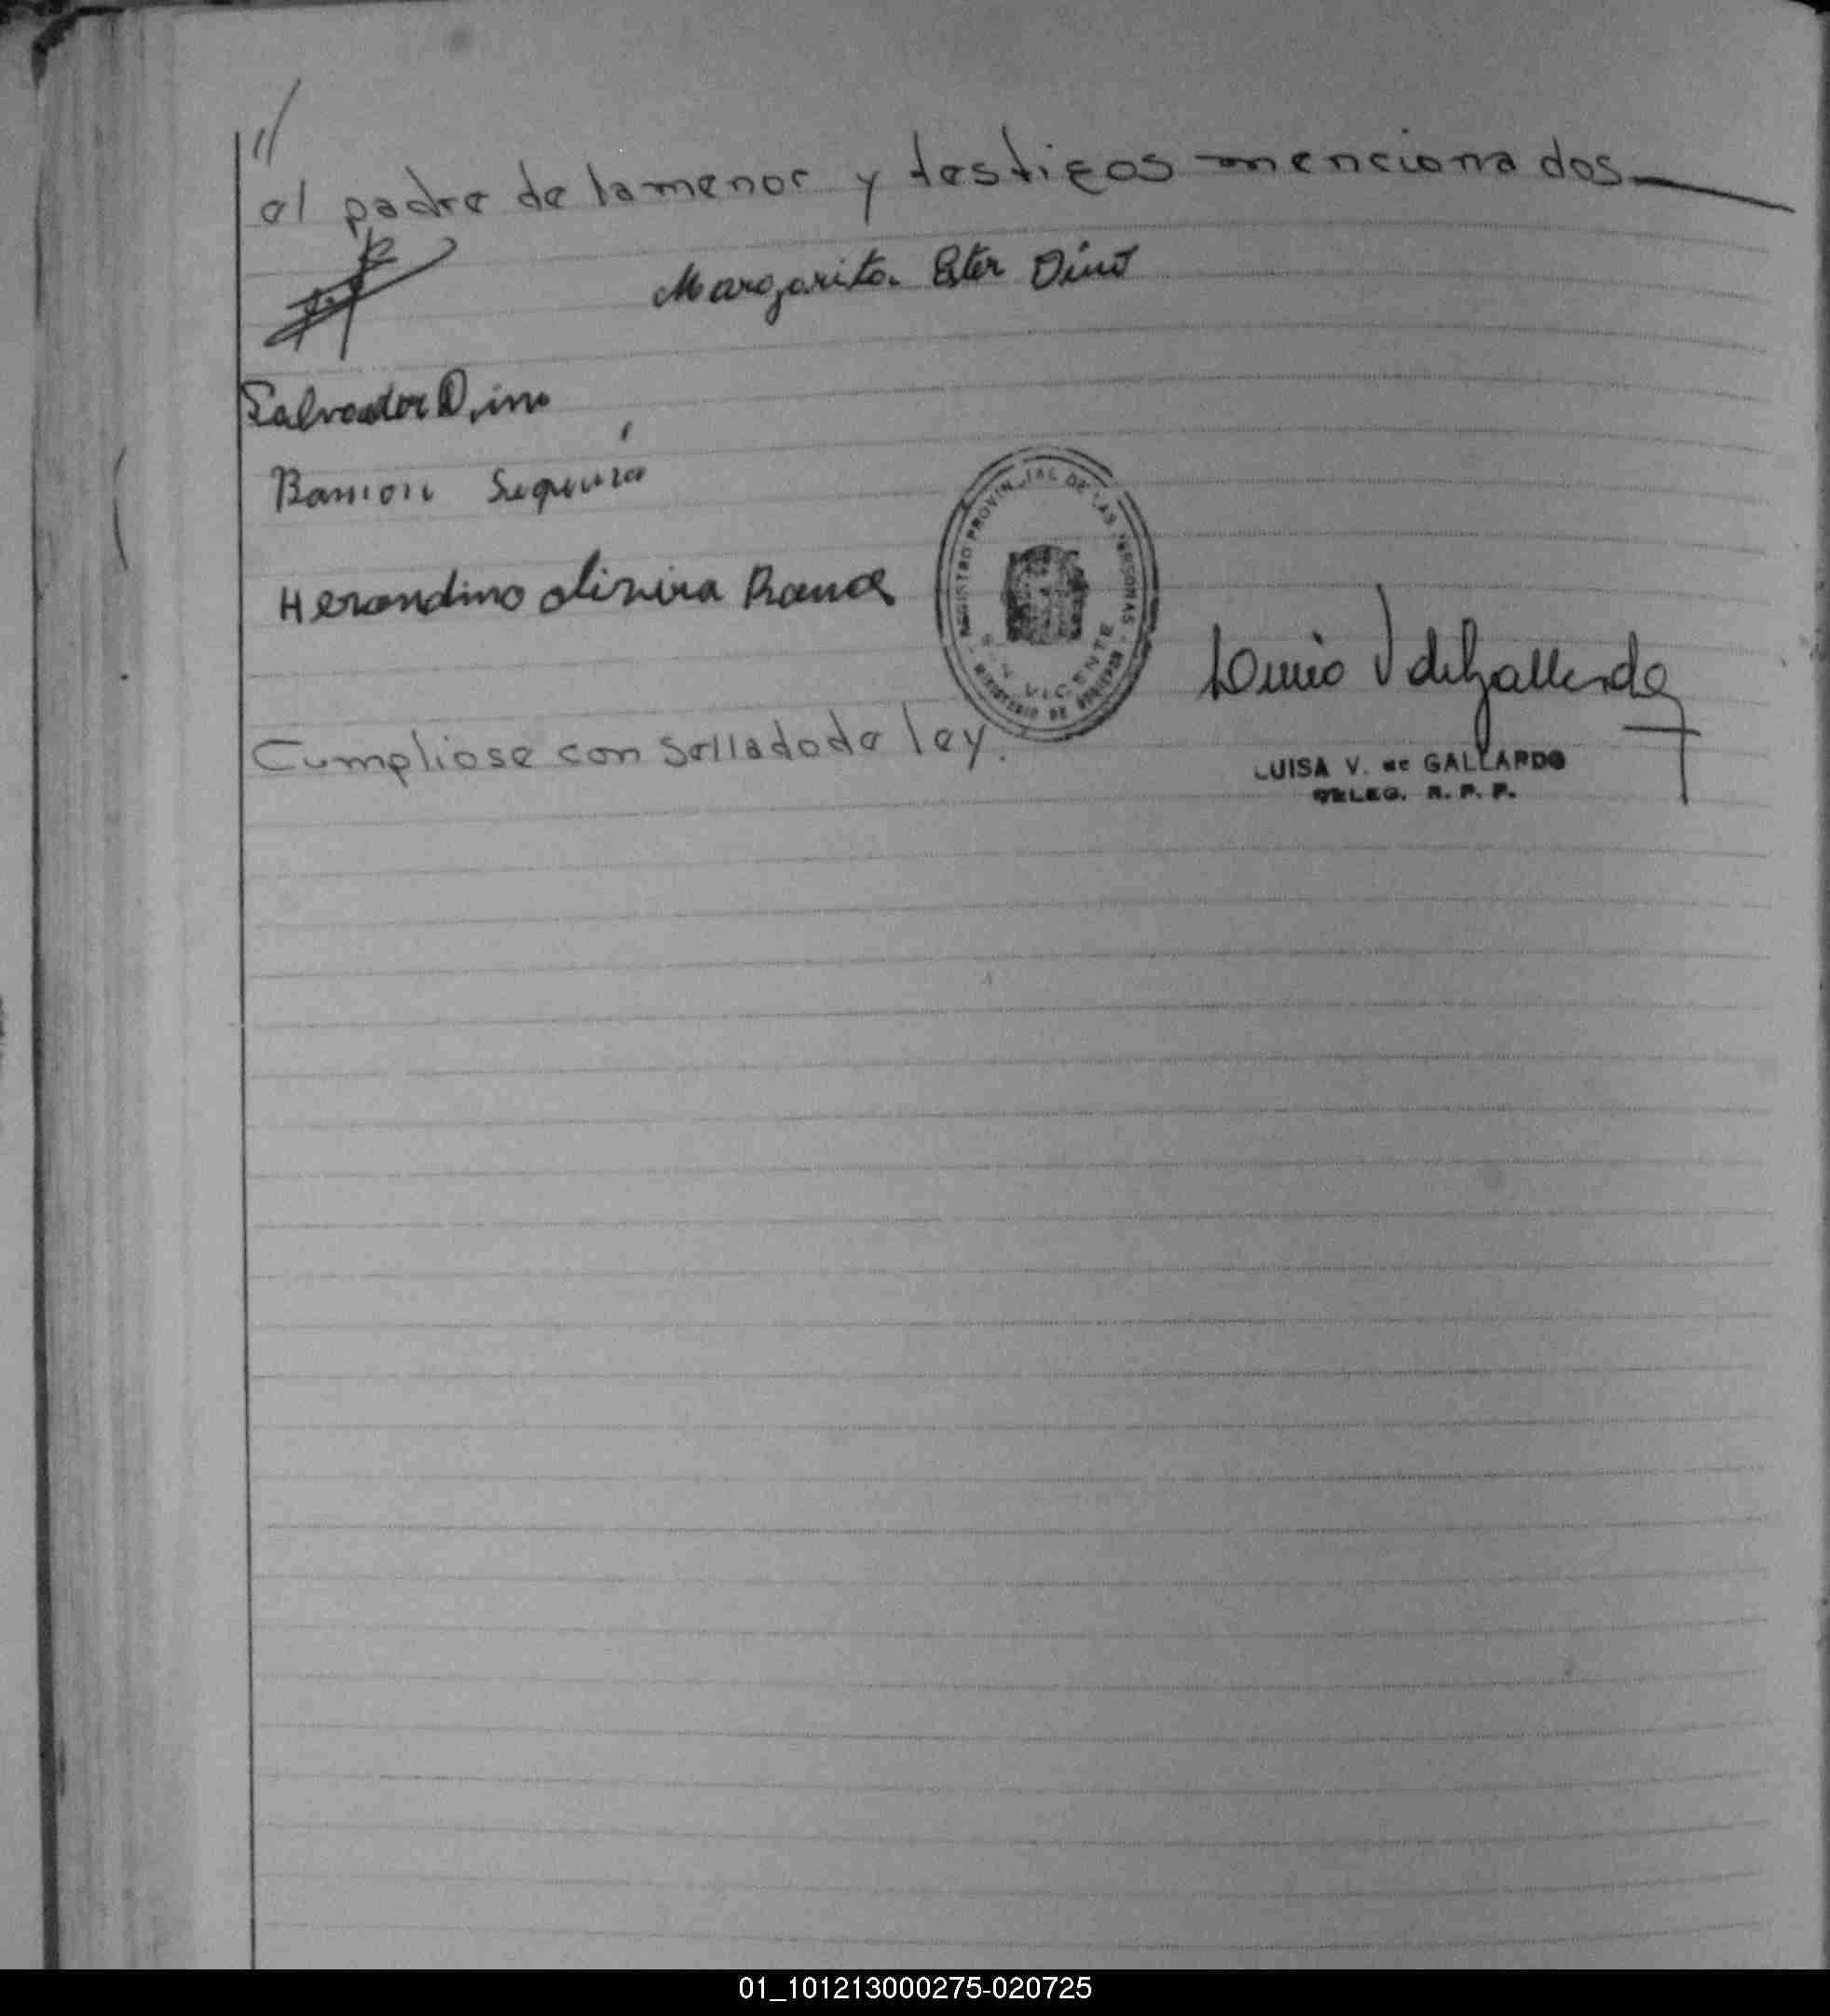 //
el padre de la menor y testigos mencionados
Margarita Ester Dino
Salvador Dino
Ramon Sequeira
Herondino olivira Ramos
REGISTRO PROVINCIAL DE LAS PERSONAS
SAN VICENTE
MINISTERIO DE
Luisa V de Gallardo
Cumpliose con Sellado de ley.
LUISA V. de GALLARDO
DELEG. R. P. P.
01_101213000275-020725